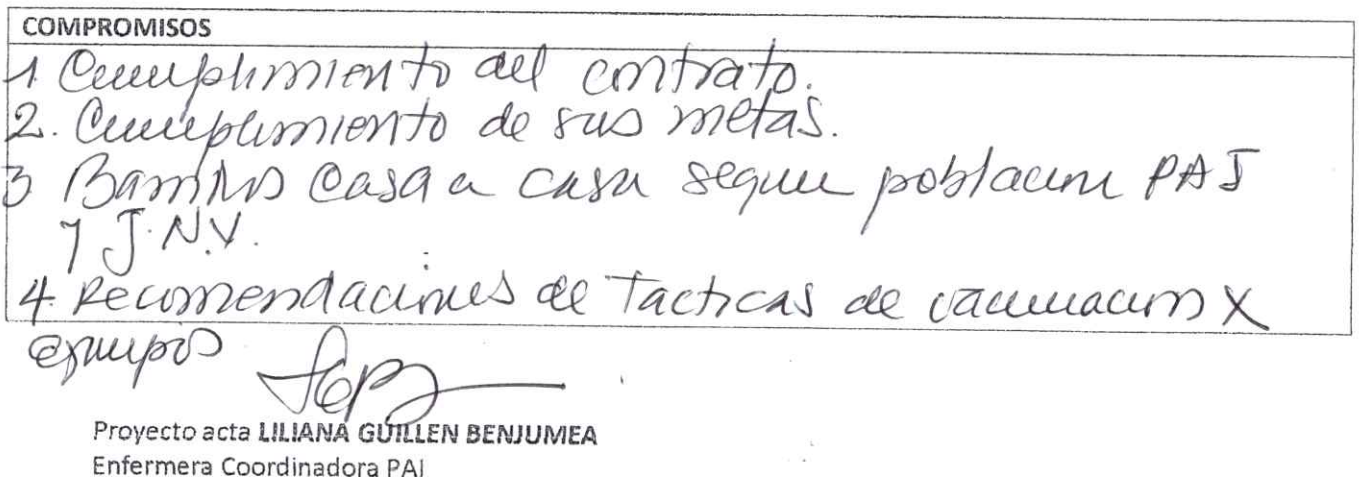 COMPROMISOS
1 Cumplimiento del contrato.
2. Cumplimiento de sus metas.
3 Barridos Casa a casa segun poblacion PAI
y J.N.V.
4. Recomendaciones de Tacticas de vacunacion X
equipos
Proyecto acta LILIANA GUILLEN BENJUMEA
Enfermera Coordinadora PAI